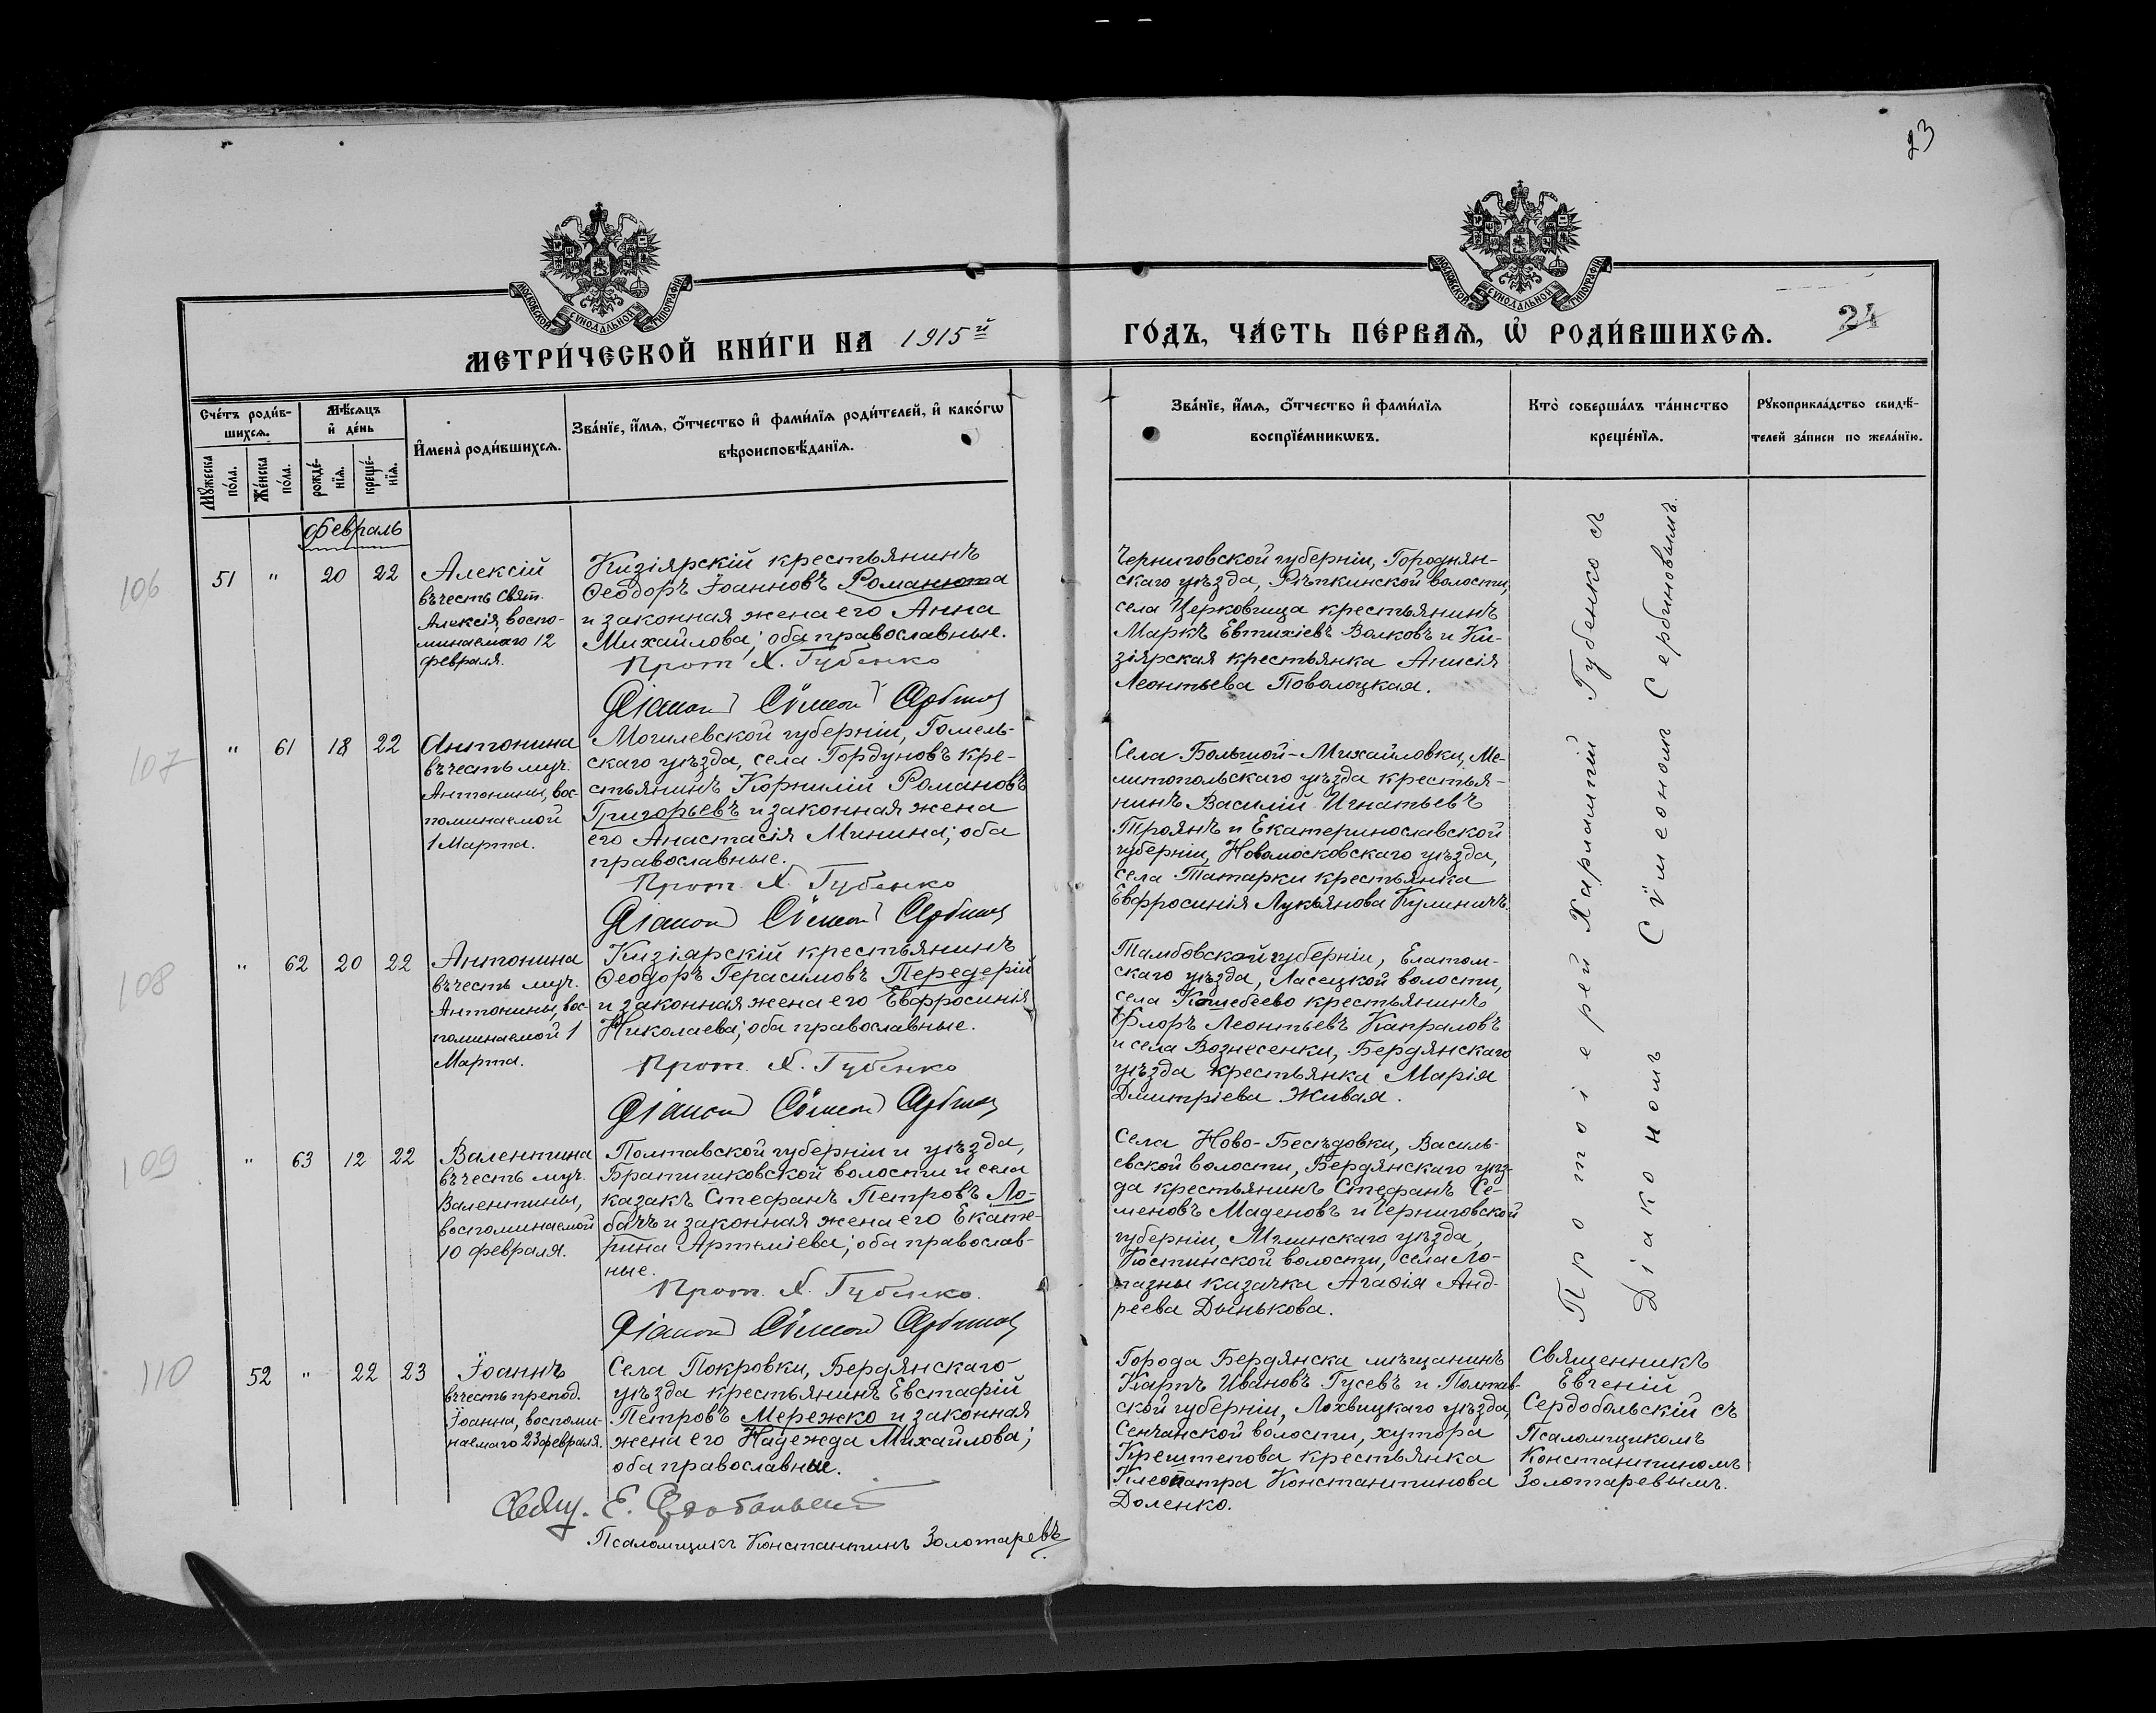 23
МОСКОВСКОЙ СѴНОДАЛЬНОЙ ТИПОГРАФІИ
МОСКОВСКОЙ СѴНОДАЛЬНОЙ ТИПОГРАФІИ
МЕТРИ́ЧЕСКОЙ КНИ́ГИ НА 1915й
ГО́ДЪ, ЧА́СТЬ ПЕ́РВАѦ, Ѡ҆ РОДИ́ВШИХСѦ.
24
Сче́тъ роди́в-
шихсѧ.
Мꙋ́жеска
по́ла.
Же́нска
по́ла.
Мѣ́сѧцъ
и҆ де́нь
рожде́-
нїѧ.
креще́-
нїѧ.
И҆мена̀ роди́вшихсѧ.
Зва́нїе, и҆́мѧ, ѻ҆́тчество и҆ фами́лїѧ роди́телей, и҆ како́гѡ
вѣроисповѣ́данїѧ.
Зва́нїе, и҆́мѧ, ѻ҆́тчество и҆ фами́лїѧ
воспрїе́мникѡвъ.
Кто̀ соверша́лъ та́инство
креще́нїѧ.
Рꙋкоприкла́дство свидѣ́-
телей за́писи по жела́нїю.
Февраль
106
51 " 20 22
Алексій
въ честь свят.
Алексія, воспо-
минаемаго 12
февраля.
Кизіярскій крестьянинъ
Ѳеодоръ Іоанновъ Романюта
и законная жена его Анна
Михайлова; оба православные.
Прот. Х. Губенко
Діаконъ Сѵмеонъ Сербиновъ
Черниговской губерніи, Городнян-
скаго уѣзда, Рѣпкинской волости,
села Церковища крестьянинъ
Маркъ Евтихіевъ Волковъ и Ки-
зіярская крестьянка Анисія
Леонтьева Поволоцкая.
107
" 61 18 22
Антонина
въ честь муч.
Антонины, вос-
поминаемой
1 Марта.
Могилевской губерніи, Гомель-
скаго уѣзда, села Гордуновъ кре-
стьянинъ Корнилій Романовъ
Григорьевъ и законная жена
его Анастасія Минина; оба
православные.
Прот. Х. Губенко
Діаконъ Сѵмеонъ Сербиновъ
Села Большой-Михайловки, Ме-
литопольскаго уѣзда крестья-
нинъ Василій Игнатьевъ
Троянъ и Екатеринославской
губерніи, Новомосковскаго уѣзда,
села Татарки крестьянка
Евфросинія Лукьянова Кулиничъ.
108
" 62 20 22
Антонина
въ честь муч.
Антонины, вос-
поминаемой 1
Марта.
Кизіярскій крестьянинъ
Ѳеодоръ Герасимовъ Передерій
и законная жена его Евфросинія
Николаева; оба православные.
Прот. Х. Губенко
Діаконъ Сѵмеонъ Сербиновъ
Тамбовской губерніи, Елатом-
скаго уѣзда, Ласецкой волости,
села Кошебеево крестьянинъ
Флоръ Леонтьевъ Капраловъ
и села Вознесенки, Бердянскаго
уѣзда крестьянка Марія
Дмитріева Живая.
109
" 63 12 22
Валентина
въ честь муч.
Валентины,
воспоминаемой
10 февраля.
Полтавской губерніи и уѣзда,
Братишковской волости и села
казакъ Стефанъ Петровъ Ло-
бачъ и законная жена его Екате-
рина Артеміева; оба православ-
ные.
Прот. Х. Губенко.
Діаконъ Сѵмеонъ Сербиновъ
Села Ново-Бесѣдовки, Василь-
евской волости, Бердянскаго уѣз-
да крестьянинъ Стефанъ Се-
меновъ Маденовъ и Черниговской
губерніи, Мглинскаго уѣзда,
Костинской волости, села Ло-
пазны казачка Агафія Анд-
реева Дынькова.
Протоіерей Харлампій Губенко съ
Діакономъ Сѵмеономъ Сербиновымъ.
110
52 " 22 23
Іоаннъ
въ честь препод.
Іоанна, воспоми-
наемаго 23 февраля.
Села Покровки, Бердянскаго
уѣзда крестьянинъ Евстафій
Петровъ Мережко и законная
жена его Надежда Михайлова;
оба православные.
Свящ. Е. Сердобольскій
Псаломщикъ Константинъ Золотаревъ.
Города Бердянска мѣщанинъ
Карпъ Ивановъ Гусевъ и Полтав-
ской губерніи, Лохвицкаго уѣзда,
Сенчанской волости, хутора
Крештепова крестьянка
Клеопатра Константинова
Доленко.
Священникъ
Евгеній
Сердобольскій съ
Псаломщикомъ
Константиномъ
Золотаревымъ.